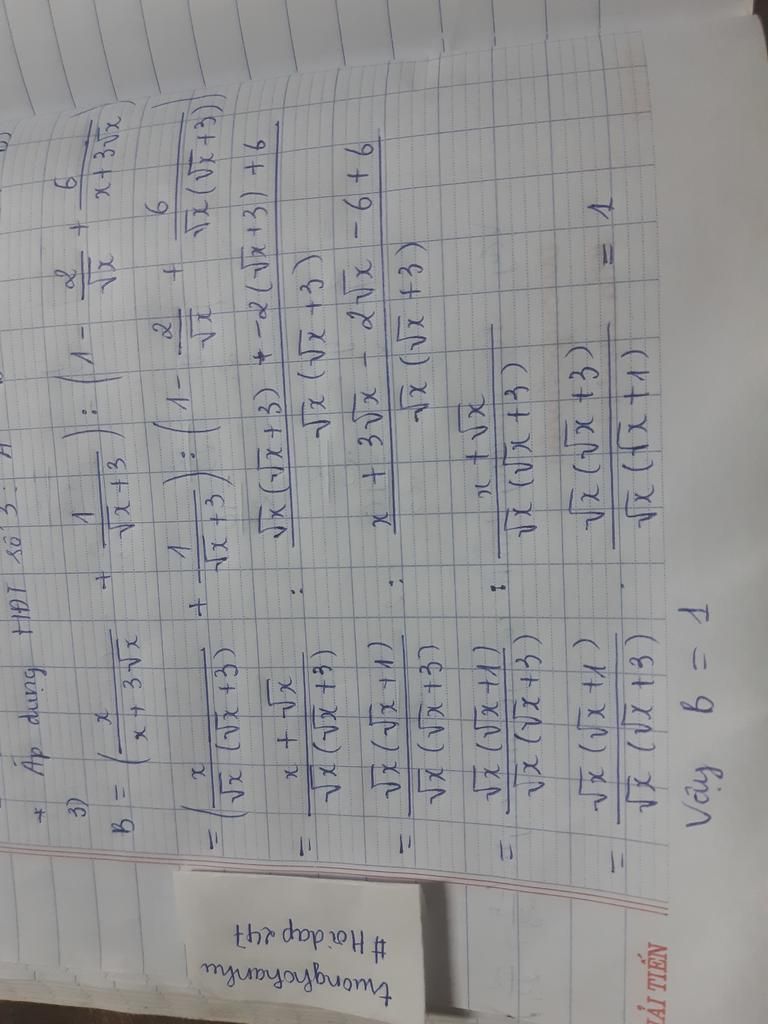 * Áp dụng HĐT số 3: A
3)
B = (x/(x + 3√x) + 1/(√x + 3)) : (1 - 2/√x + 6/(x + 3√x))
= (x/(√x (√x + 3)) + 1/(√x + 3)) : (1 - 2/√x + 6/(√x (√x + 3)))
= (x + √x)/(√x (√x + 3)) : (√x (√x + 3) + -2 (√x + 3) + 6)/(√x (√x + 3))
= (√x (√x + 1))/(√x (√x + 3)) : (x + 3√x - 2√x - 6 + 6)/(√x (√x + 3))
= (√x (√x + 1))/(√x (√x + 3)) : (x + √x)/(√x (√x + 3))
= (√x (√x + 1))/(√x (√x + 3)) . (√x (√x + 3))/(√x (√x + 1)) = 1
Vậy B = 1
truonghchanhu
#Hoidap247
ẢI TIẾN